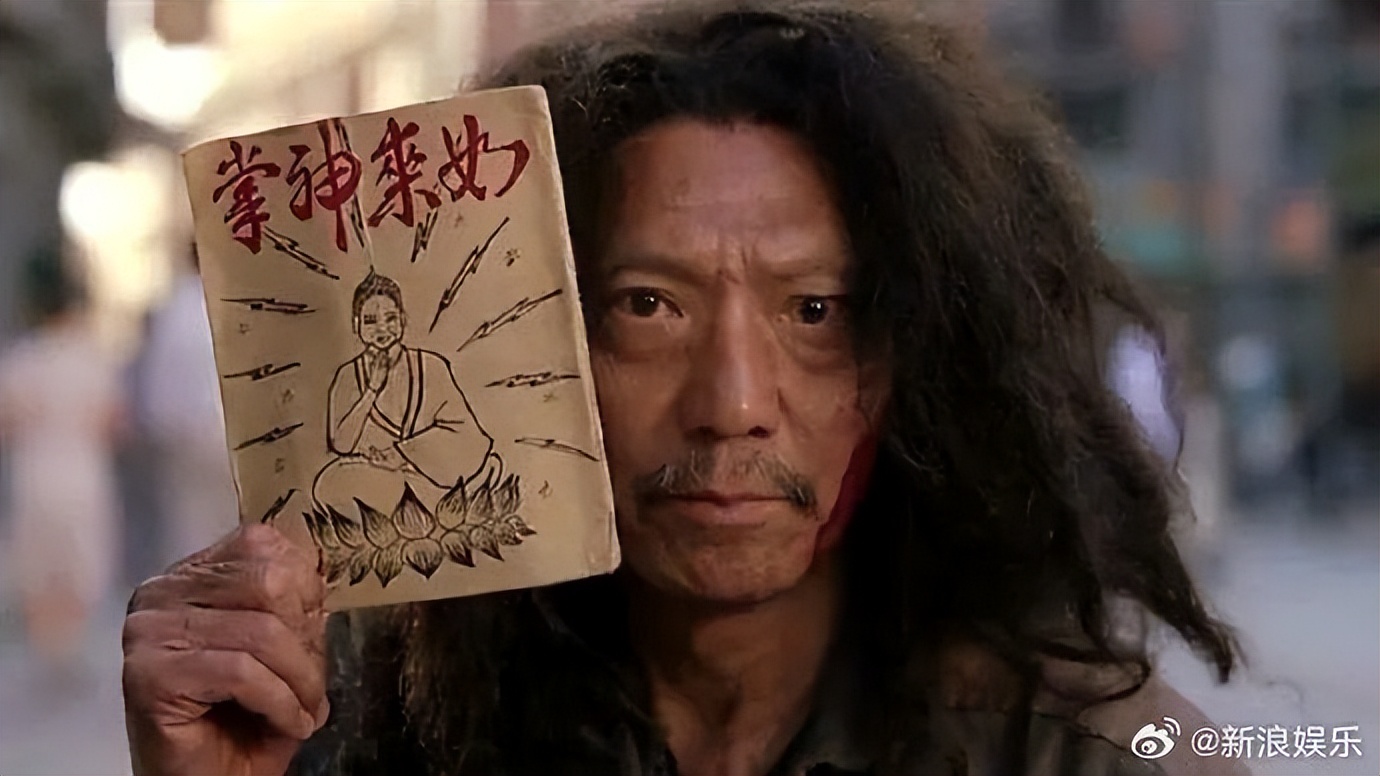 如来神掌
@新浪娱乐